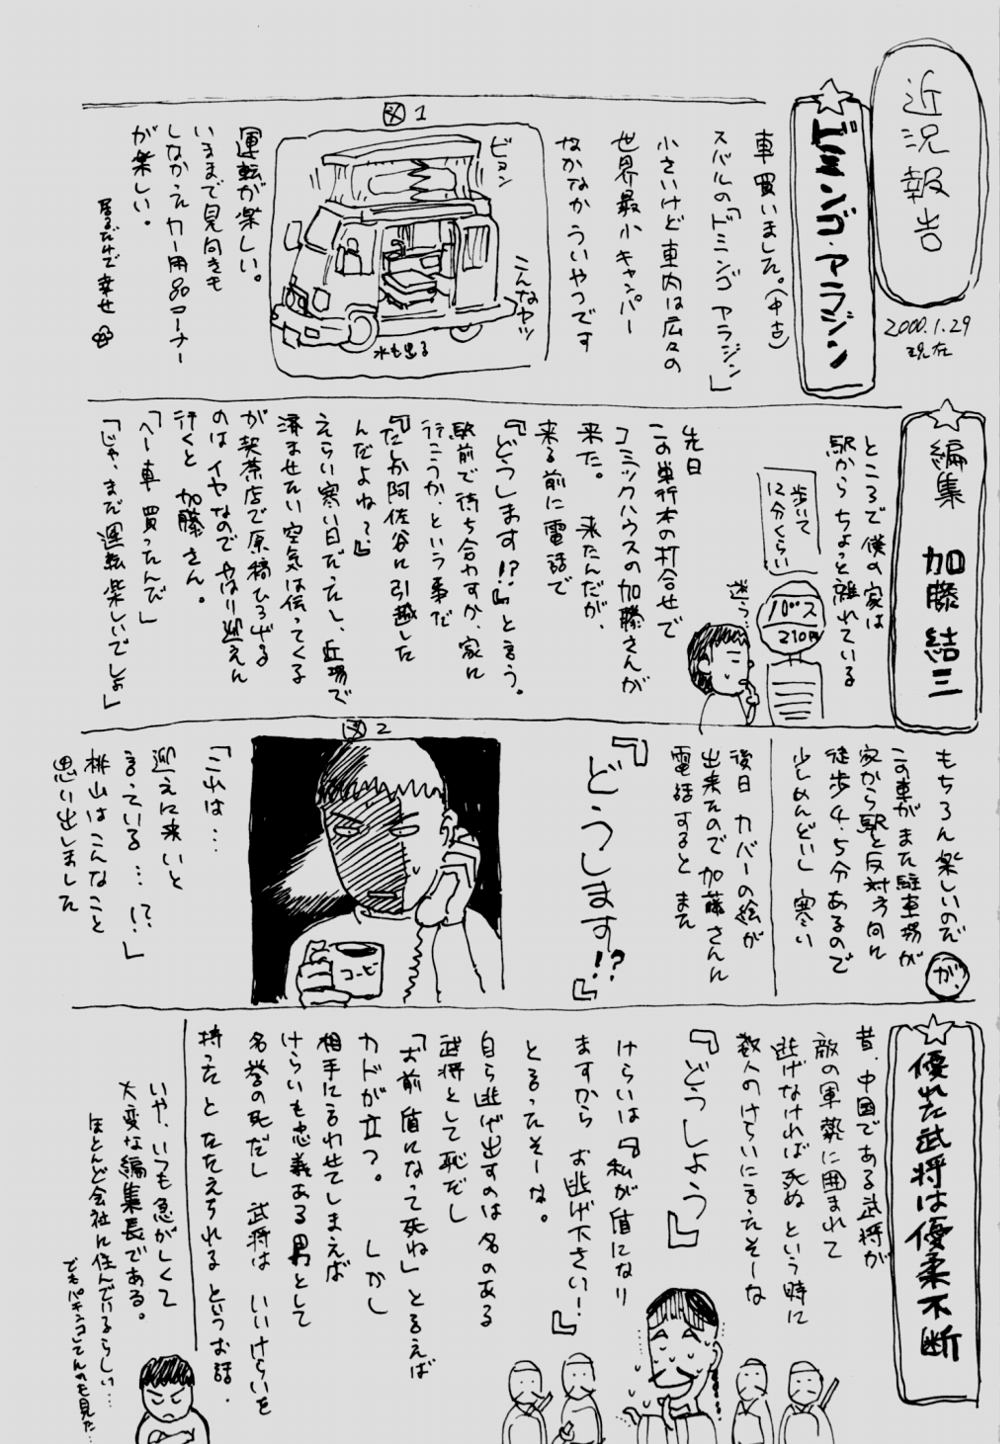 近況報告
2000.1.29
現在
ドミンゴ・アラジン
車買いました。(中古)
スバルの「ドミンゴ アラジン」
小さいけど車内は広々の
世界最小キャンパー
なかなかういやつです
図1
ビヨン
こんなヤツ
水も出る
運転が楽しい。
いままで見向きも
しなかったカー用品コーナー
が楽しい。
居るだけで幸せ
編集 加藤 結三
ところで僕の家は
駅からちょっと離れている
歩いて
12分くらい
バス
210円
迷う…
先日
この単行本の打合せで
コミックハウスの加藤さんが
来た。 来たんだが、
来る前に電話で
『どうします!?』と言う。
駅前で待ち合わすか、家に
行こうか、という事だ
『たしか阿佐谷に引越した
んだよね?』
えらい寒い日だったし、近場で
済ませたい空気は伝ってくる
が喫茶店で原稿ひろげる
のはイヤなのでやはり迎えに
行くと 加藤さん。
「へー車買ったんだ」
「じゃ、まだ運転楽しいでしょ」
もちろん楽しいのだ
が、
この車がまた駐車場が
家から駅と反対方向に
徒歩4、5分あるので
少しめんどいし 寒い
後日 カバーの絵が
出来たので加藤さんに
電話すると また
『どうします!?』
図2
コーヒー
「これは…
迎えに来いと
言っている…!?」
桃山はこんなこと
思い出しました
優れた武将は優柔不断
昔、中国である武将が
敵の軍勢に囲まれて
逃げなければ死ぬという時に
数人のけらいに言ったそーな
『どうしよう』
けらいは『私が盾になり
ますから お逃げ下さい!』
と言ったそーな。
自ら逃げ出すのは名のある
武将として恥だし
「お前盾になって死ね」と言えば
カドが立つ。 しかし
相手に言わせてしまえば
けらいも忠義ある男として
名誉の死だし 武将は いいけらいを
持った とたたえられる というお話.
いや、いつも急がしくて
大変な編集長である。
ほとんど会社に住んでいるらしい…
でもパチンコしてんのも見た…